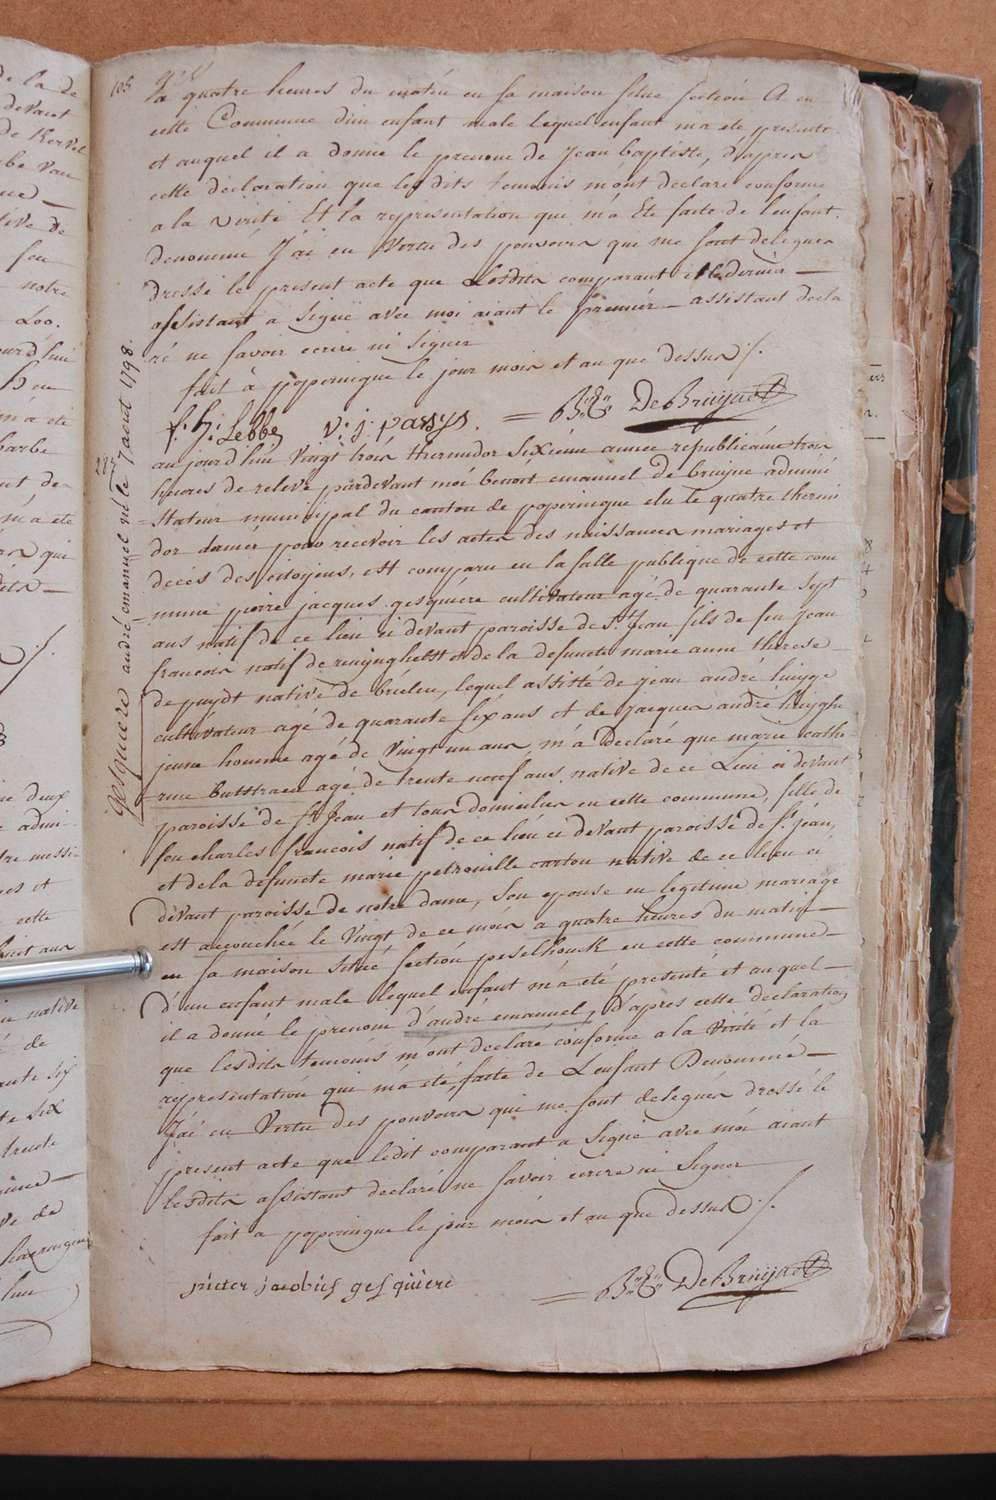 105
a quatre heures du matin en sa maison situe section A en
cette Commune d'un enfant male lequel enfant m'a ete presenté
et auquel il a donné le prenom de jean baptiste, d'apres
cette declaration que lesdits temouis m'ont declaré conforme
a la verité Et la representation que m'a Eté faite de l'enfant
denommé J'ai en Vertu des pouvoirs qui me sont deleguer
dressé le present acte que Lesdits comparant et le dernier
assistant a signé avec moi aiant le premier assistant decla
ré ne savoir ecrire ni signer
fait à poperingue le jour mois et an que dessus ./.
f: h: Lebbe v: j: parsys. = B: E: De Bruyne
aujourd'hui vingt trois thermidor sixieme annee republicaine trois
heures de relevé pardevant moi benoit emanuel de bruyne admini
strateur municipal du canton de poperingue elu le quatre thermi
dor dernier pour recevoir les actes des naissances mariages et
décès des citoyens, est comparu en la salle publique de cette com
mune pierre jacques gesquiere cultivateur agé de quarante sept
ans natif de ce lieu ci devant paroisse de St Jean fils de feu jean
francois natif de reninghelst et de la defuncte marie anne therese
de puydt native de brielen, lequel assitté de jean andré huyge
cultivateur agé de quarante six ans et de jacques andré huyghe
jeune homme agé de vingt un ans, m'a Declaré que marie cathe
rine butstraen agé de trente neuf ans native de ce Lieu ci devant
paroisse de St Jean et tous domicilies en cette commune, fille de
feu charles francois natif de ce lieu ci devant paroisse de St jean,
et de la defuncte marie petronille carton native de ce lieu ci
devant paroisse de notre dame, son epouse en legitime mariage
est accouchée le Vingt de ce mois a quatre heures du matin
en sa maison situé section peselhouck en cette commune
d'un enfant male lequel enfant m'a été presenté et auquel
il a donné le prenom d'andré emanuel, d'apres cette declaration
que lesdits temouis m'ont declaré conforme a la Vérité et la
representation qui m'a été faite de L'enfant Denommé
J'ai en Vertu des pouvoirs qui me sont delegués dressé le
present acte que ledit comparant a signé avec moi aiant
lesdits assistant declaré ne savoir ecrire ni signer
fait a poperingue le jour mois et an que dessus ./.
pieter jacobus gesquiere = B: E: De Bruyne
gesquiere andré emanuel né le 7 aout 1798.